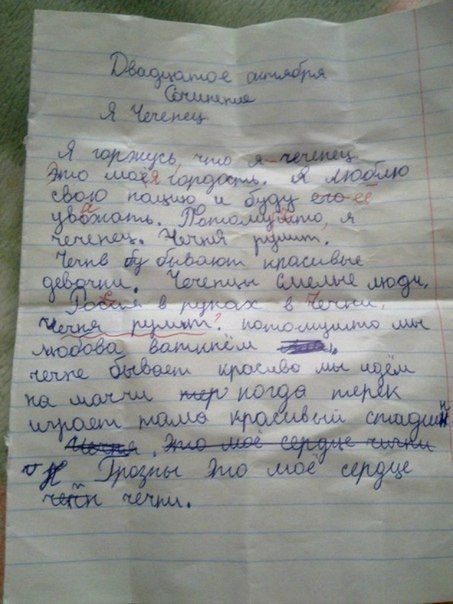 Двадцатое октября
Сочинение
Я Чеченец
Я горжусь, что я чеченец
Это моя гордость. Я люблю
свою нацию и буду его ее
уважать. Потомушто, я
чеченец. Чечня рулит.
Чечне бывают красивые
девочки. Чеченцы смелые люди,
Россия в руках в Чечни,
Чечня рулит? потомушто мы
любова ваткнём
чечне бывает красиво мы идём
на матчи тер когда терек
играет тама красивый стадион
Чечня, это моё сердце чични
Грозны это моё сердце
чечни.